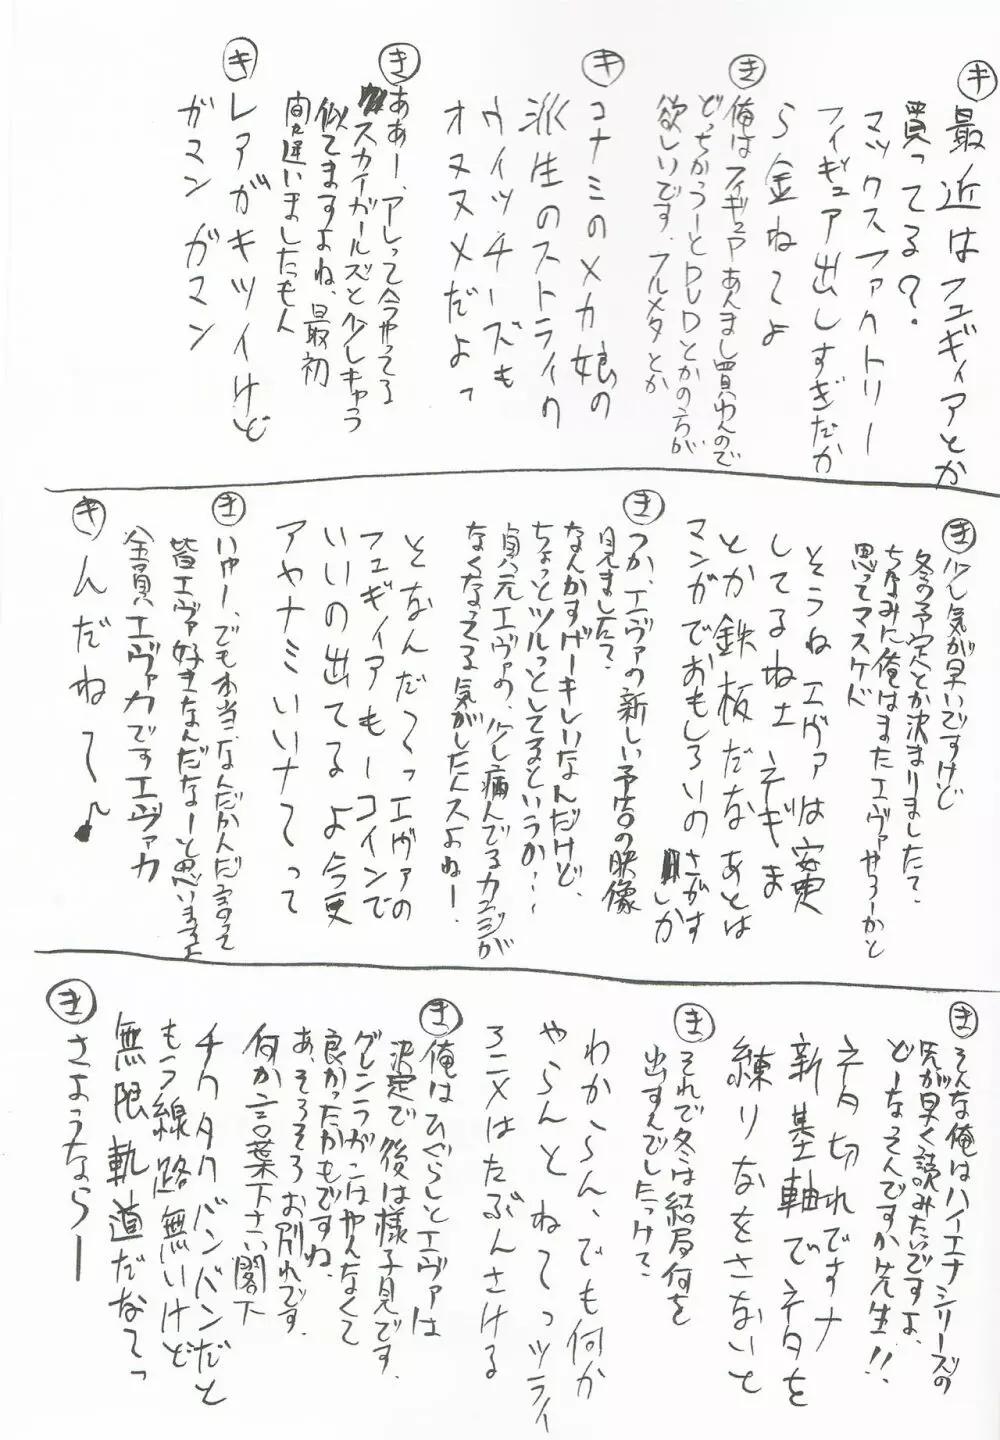 キ 最近はフュギィアとか
買ってる?
マックスファクトリー
フィギュア出しすぎだか
ら金ねてよ
き 俺はフィギュアあんまし買わんので
どっちかうーとDVDとかの方が
欲しいです、フルメタとか
キ コナミのメカ娘の
派生のストライク
ウィッチーズも
オススメだよっ
き ああー、アレって今やってる
スカイガールズと少しキャラ
似てますよね、最初
間違いましたもん
キ レアがキツイけど
ガマンガマン
き 少し気が早いですけど
冬の予定とか決まりましたて?
ちなみに俺はまたエヴァやろーかと
思ってマスケド
そうねエヴァは安定
してるね土ネギま
とか鉄板だなあとは
マンガでおもしろいのさがす
しか
き つか、エヴァの新しい予告の映像
見ましたて?
なんかすげーキレイなんだけど、
ちょっとツルっとしてるというか…
貞元エヴァの、少し病んでるカンジが
なくなってる気がしたんスよねー!
そなんだ〜っエヴァの
フュギィアもーコインで
いいの出てるよ今更
アヤナミいいナてって
き いゆー、でも本当、なんだかんだ言って
皆エヴァ好きなんだなーと思いますよ
全員エヴァカですエヴァカ
キ んだねて〜♪
き そんな俺はハイエナシリーズの
先が早く読みたいですよ、
どーなってんですか先生!!
ネタ切れですナ
新基軸でネタを
練りなをさないと
き それで冬は結局何を
出すんでしたっけて?
わからん、でも何か
やらんとねてっツライ
アニメはたぶんさける
き 俺はひぐらしとエヴァは
決定で後は様子見です。
グレンラガンはやんなくて
良かったかもですね、
あ、そろそろお別れです、
何か言葉下さい閣下
チクタクバンバンだと
もう線路無いけど
無限軌道だなてっ
き さようならー